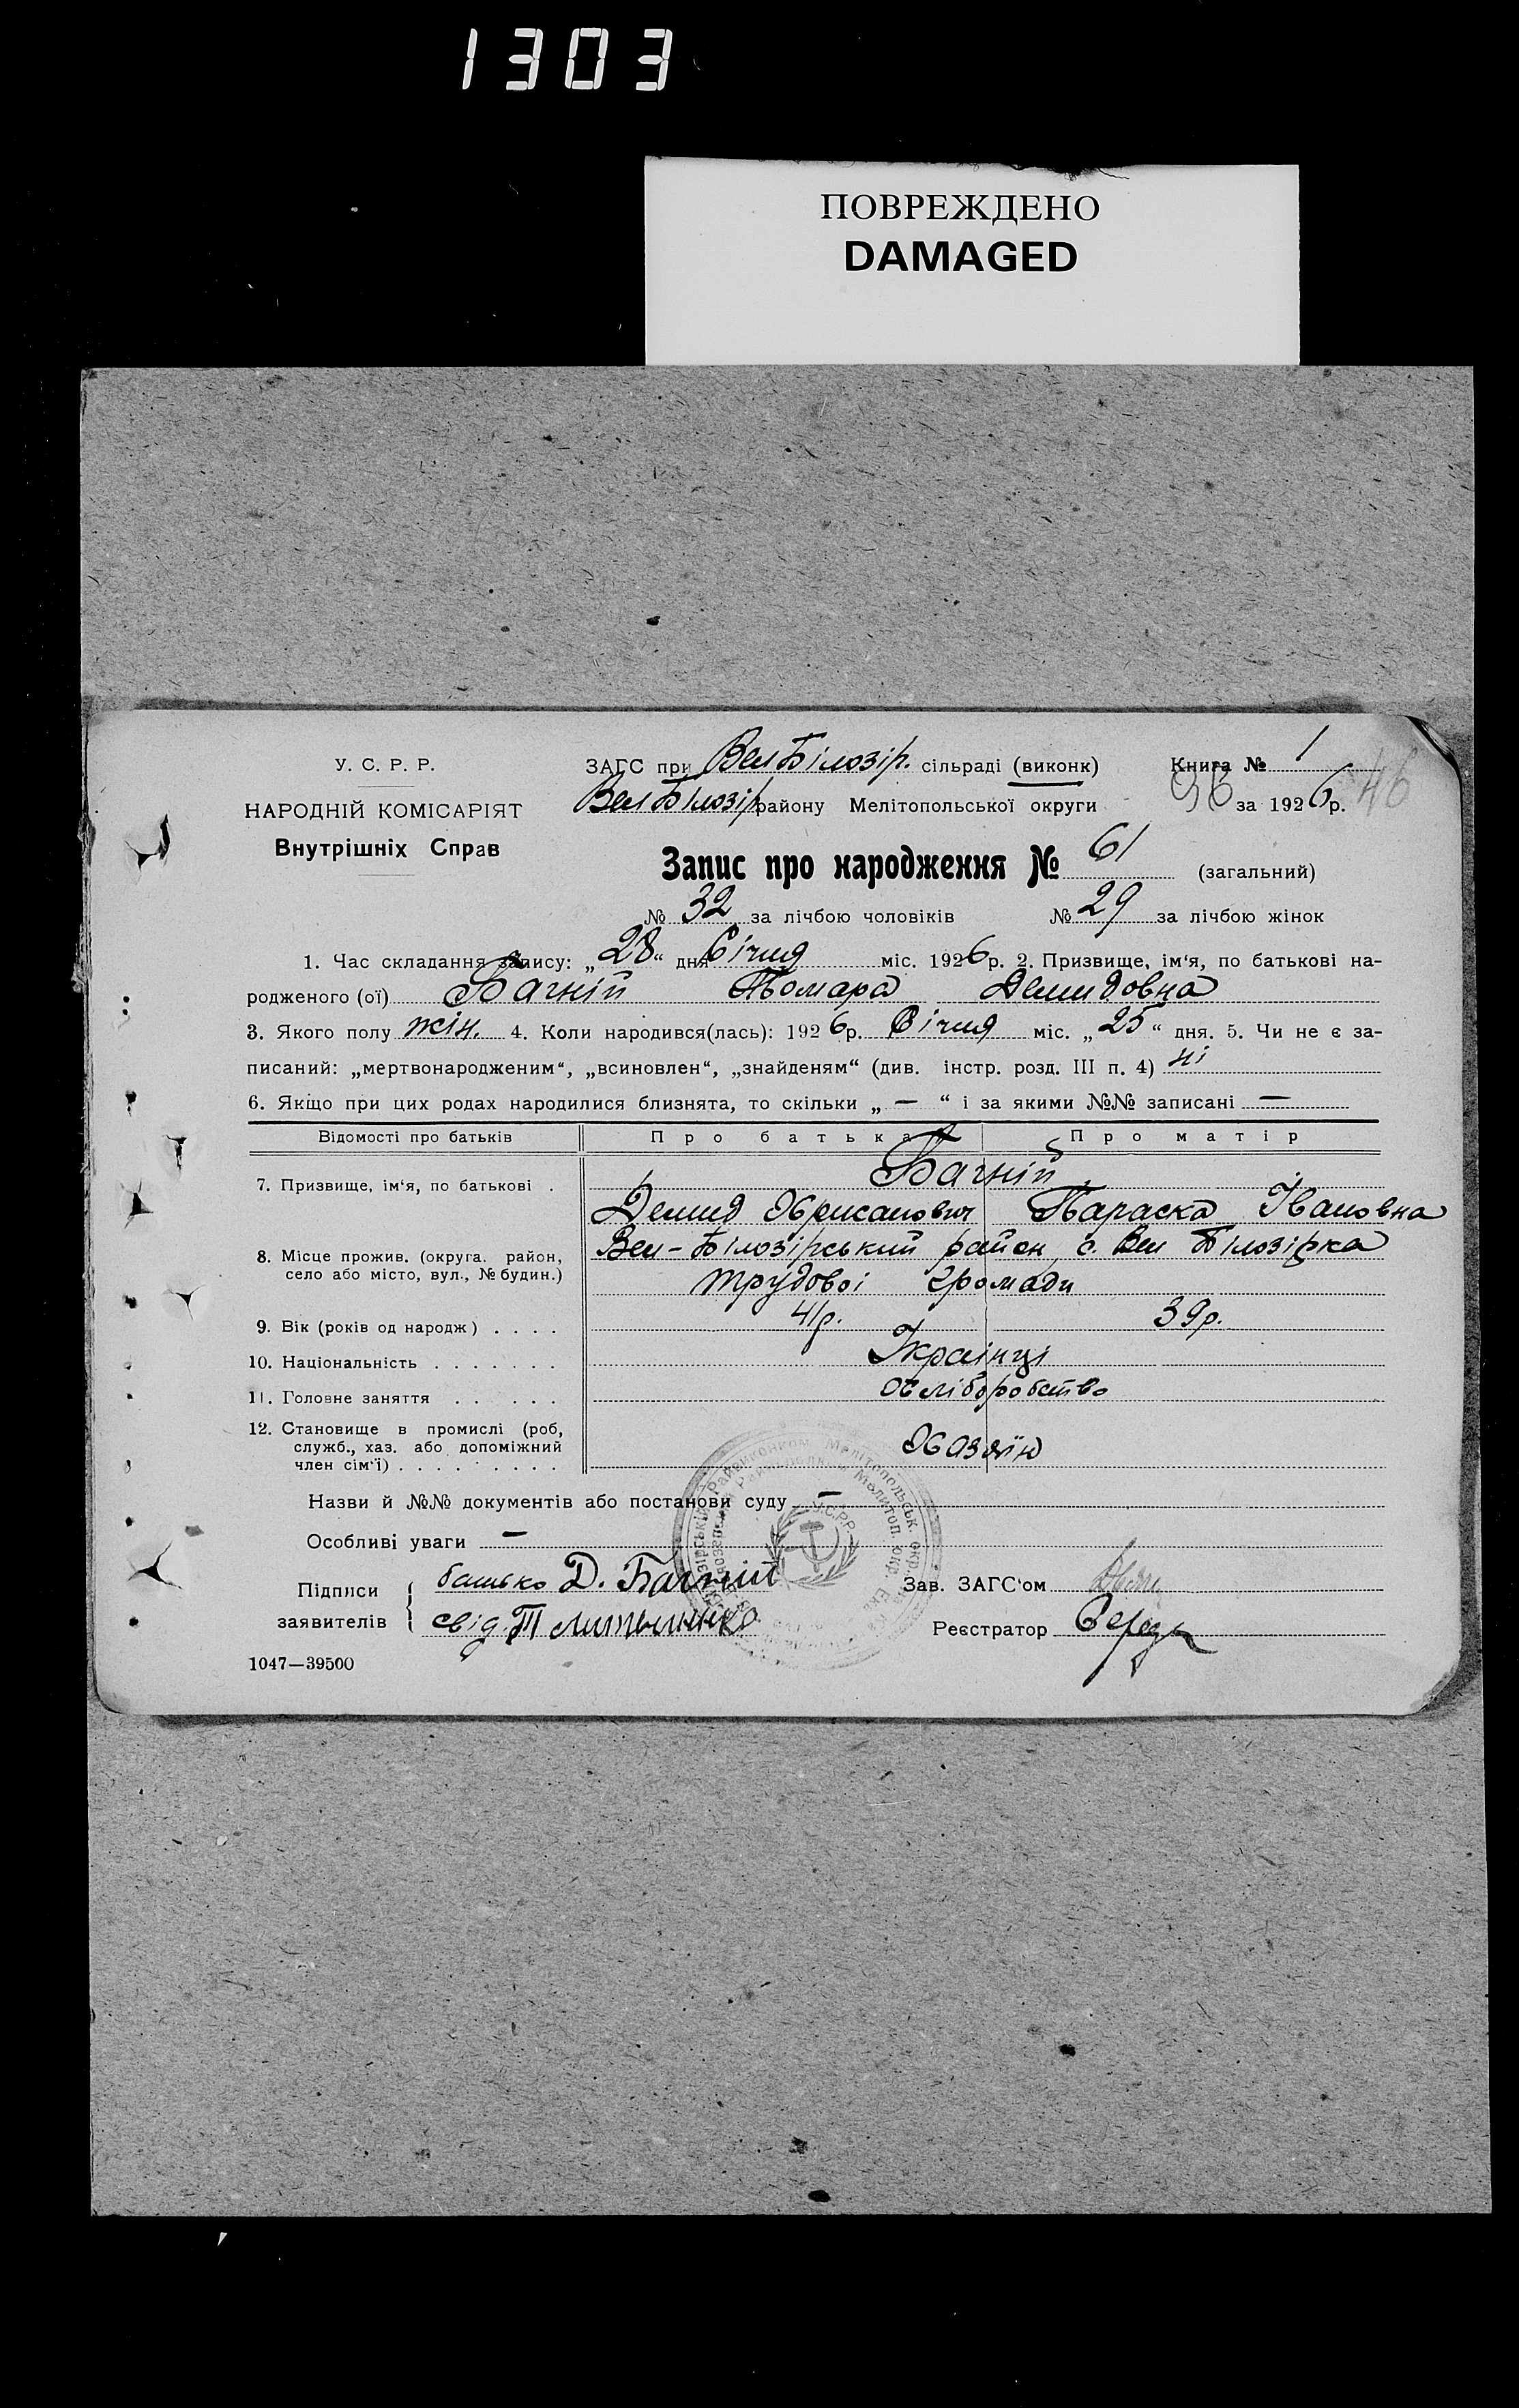 1303
ПОВРЕЖДЕНО
DAMAGED
У. С. Р. Р.
НАРОДНІЙ КОМІСАРІЯТ
Внутрішніх Справ
ЗАГС при Вел Білозір. сільраді (виконк)
Вел Білозір району Мелітопольської округи
Книга № 1
за 1926 р. 46
Запис про народження № 61 (загальний)
№ 32 за лічбою чоловіків № 29 за лічбою жінок
1. Час складання запису: „28“ дня Січня міс. 1926 р. 2. Призвище, ім‘я, по батькові на-
родженого (ої) Багній Томара Демидовна
3. Якого полу жін. 4. Коли народився(лась): 1926 р. Січня міс. „25“ дня. 5. Чи не є за-
писаний: „мертвонародженим“, „всиновлен“, „знайденям“ (див. інстр. розд. III п. 4) ні
6. Якщо при цих родах народилися близнята, то скільки „ — “ і за якими №№ записані —
Відомості про батьків Про батька Про матір
7. Призвище, ім‘я, по батькові . Багній
Демид Хрисанович Параска Івановна
8. Місце прожив. (округа. район, село або місто, вул., № будин.) Вел-Білозірський район с. Вел Білозірка
трудової громади
9. Вік (років од народж) . . . . 41р. 39р.
10. Національність . . . . . . . Українці
11. Головне заняття . . . . . . хліборобство
12. Становище в промислі (роб,
служб., хаз. або допоміжний
член сім‘ї) . . . . . . . . . Хазяїн
Назви й №№ документів або постанови суду —
Особливі уваги —
Підписи
заявителів
батько Д. Багний
свід. Т Литвиненко
Зав. ЗАГС‘ом
Реєстратор Середа
У.С.Р.Р.
1047—39500